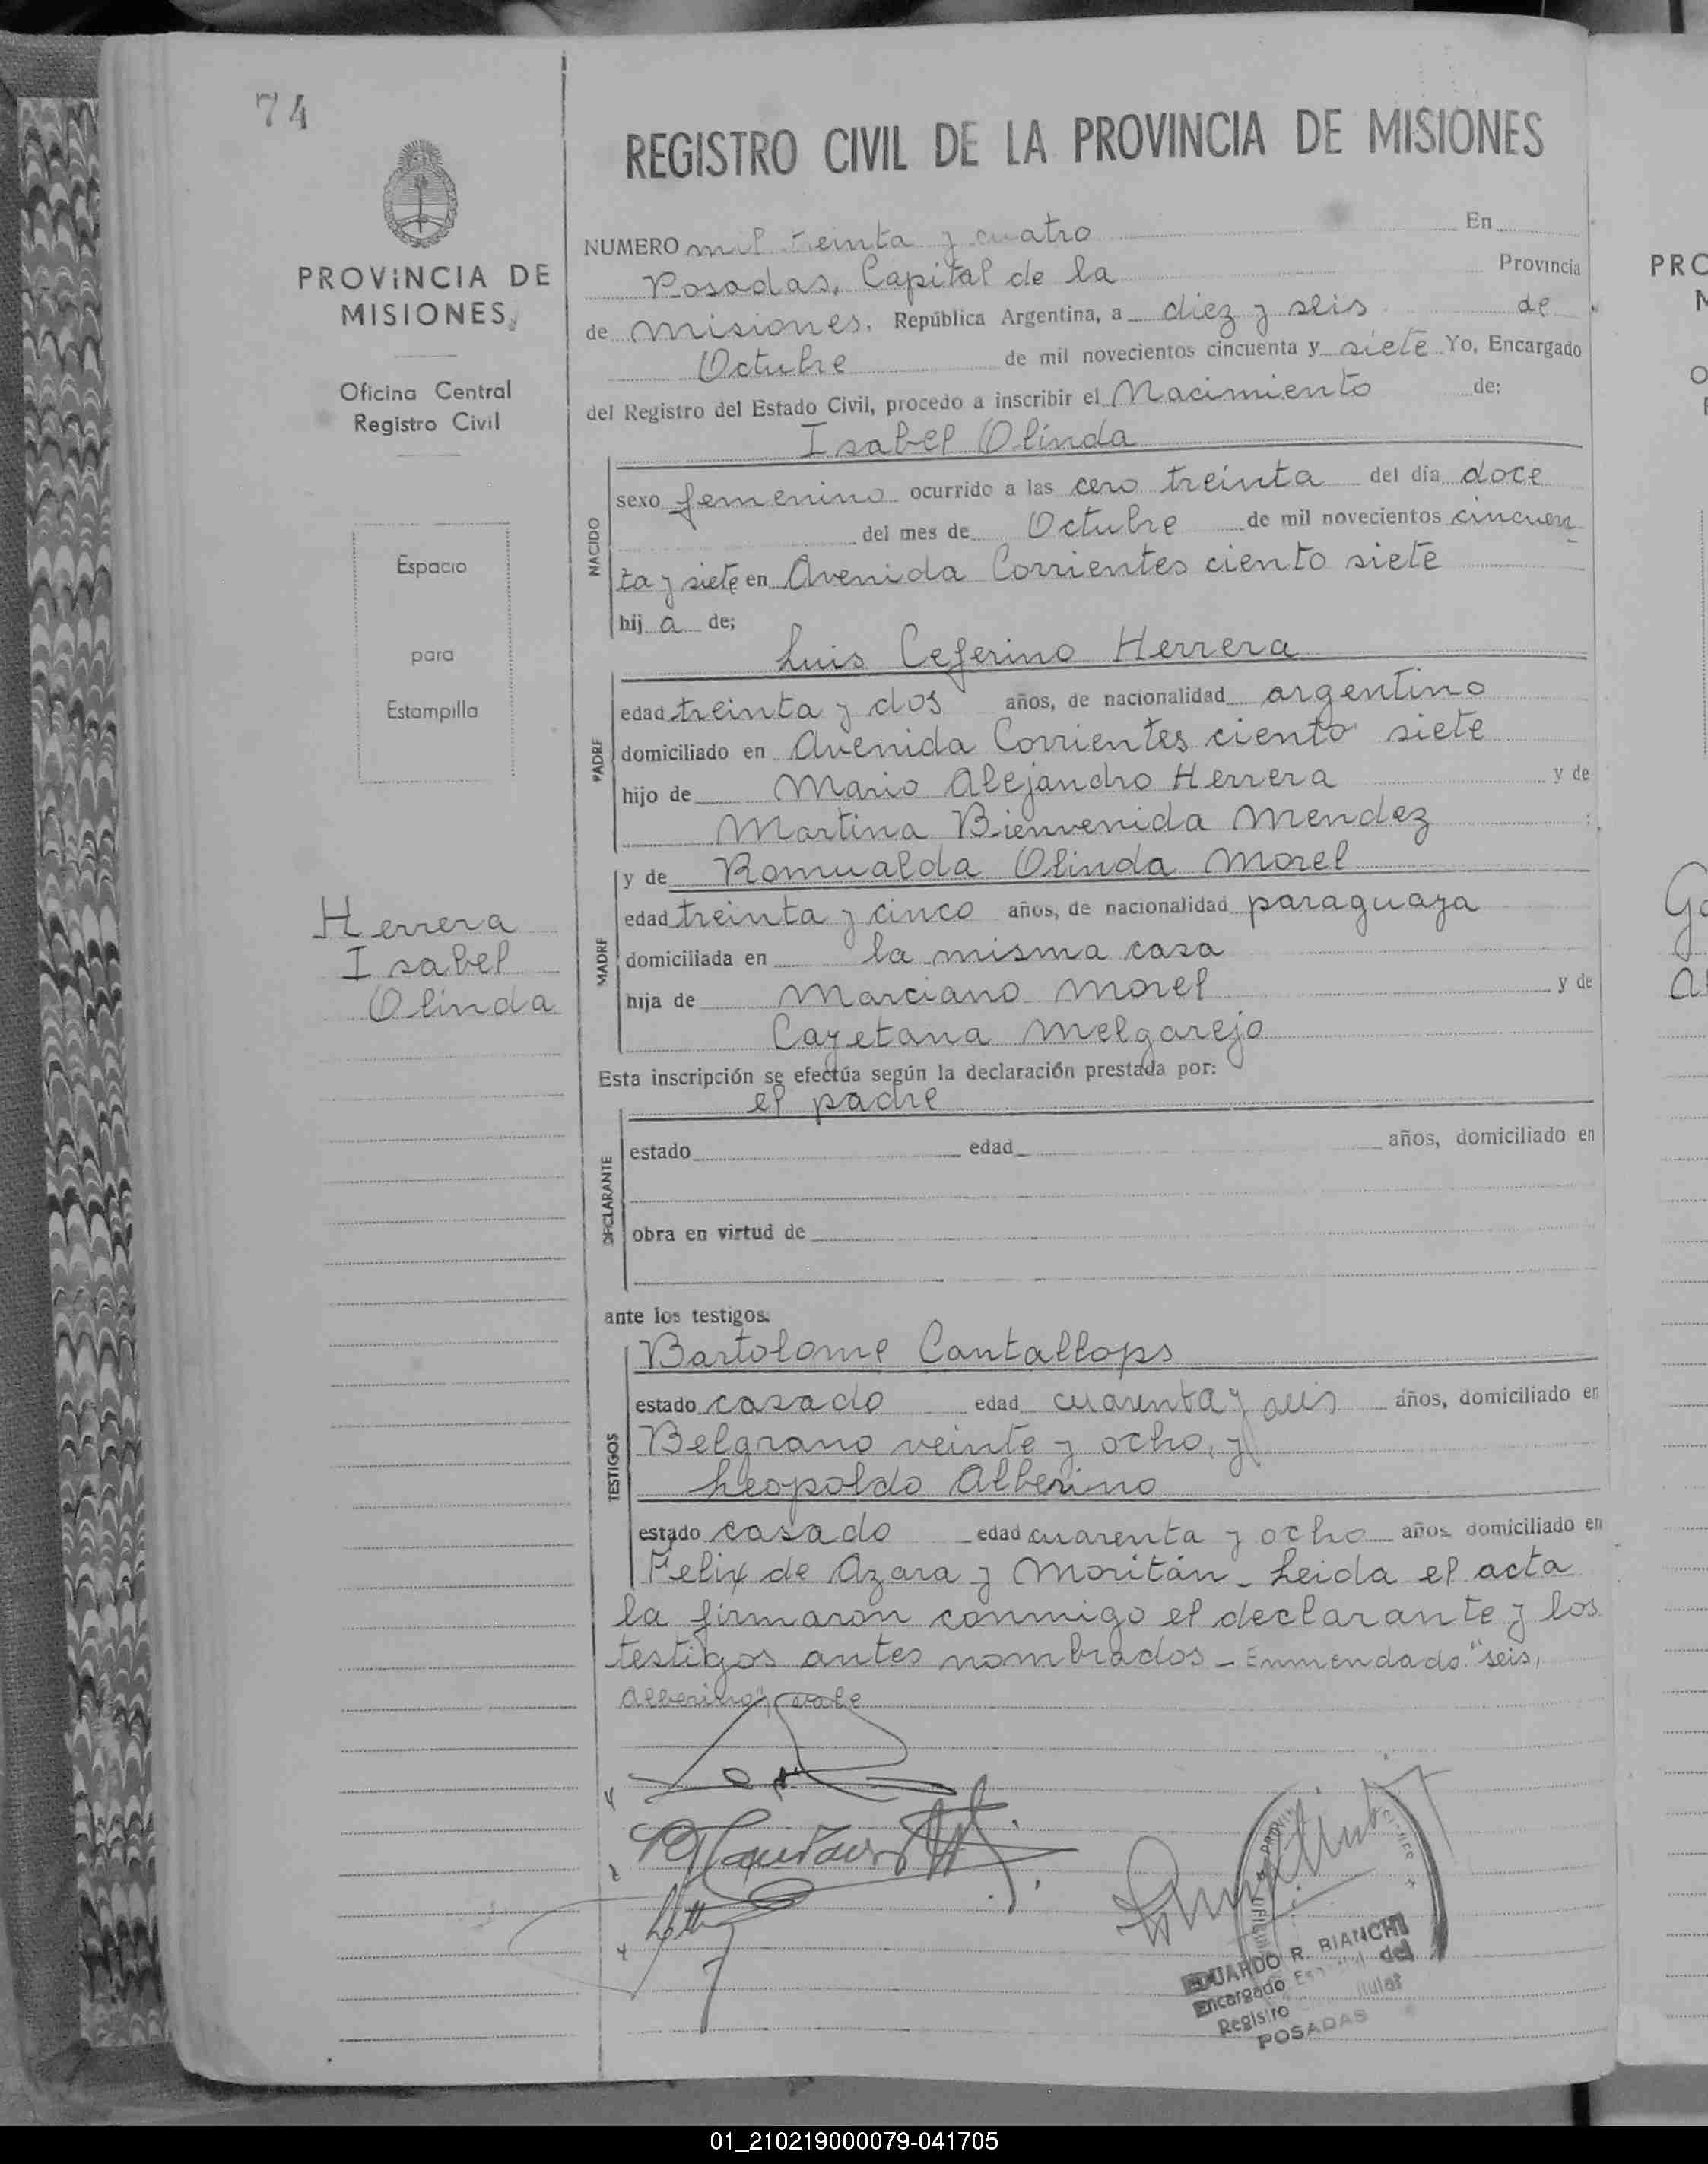 74
REGISTRO CIVIL DE LA PROVINCIA DE MISIONES
PROVINCIA DE
MISIONES
Oficina Central
Registro Civil
Espacio
para
Estampilla
Herrera
Isabel
Olinda
NUMERO mil treinta y cuatro En
Posadas, Capital de la Provincia
de Misiones. República Argentina, a diez y seis de
Octubre de mil novecientos cincuenta y siete Yo, Encargado
del Registro del Estado Civil, procedo a inscribir el Nacimiento de:
Isabel Olinda
NACIDO
sexo femenino ocurrido a las cero treinta del día doce
del mes de Octubre de mil novecientos cincuen
ta y siete en Avenida Corrientes ciento siete
hij a de;
Luis Ceferino Herrera
PADRE
edad treinta y dos años, de nacionalidad argentino
domiciliado en Avenida Corrientes ciento siete
hijo de Mario Alejandro Herrera y de
Martina Bienvenida Mendez
y de Romualda Olinda Morel
MADRE
edad treinta y cinco años, de nacionalidad paraguaya
domiciliada en la misma casa
hija de Marciano Morel y de
Cayetana Melgarejo
Esta inscripción se efectúa según la declaración prestada por:
el padre
DECLARANTE
estado edad años, domiciliado en
obra en virtud de
ante los testigos.
TESTIGOS
Bartolome Cantallops
estado casado edad cuarenta y seis años, domiciliado en
Belgrano veinte y ocho, y
Leopoldo Alberino
estado casado edad cuarenta y ocho años domiciliado en
Felix de Azara y Moritán - Leida el acta
la firmaron conmigo el declarante y los
testigos antes nombrados - Enmendado "seis,
Alberino", vale
EDUARDO R. BIANCHI
Encargado del
Registro
POSADAS
PRO
01_210219000079-041705